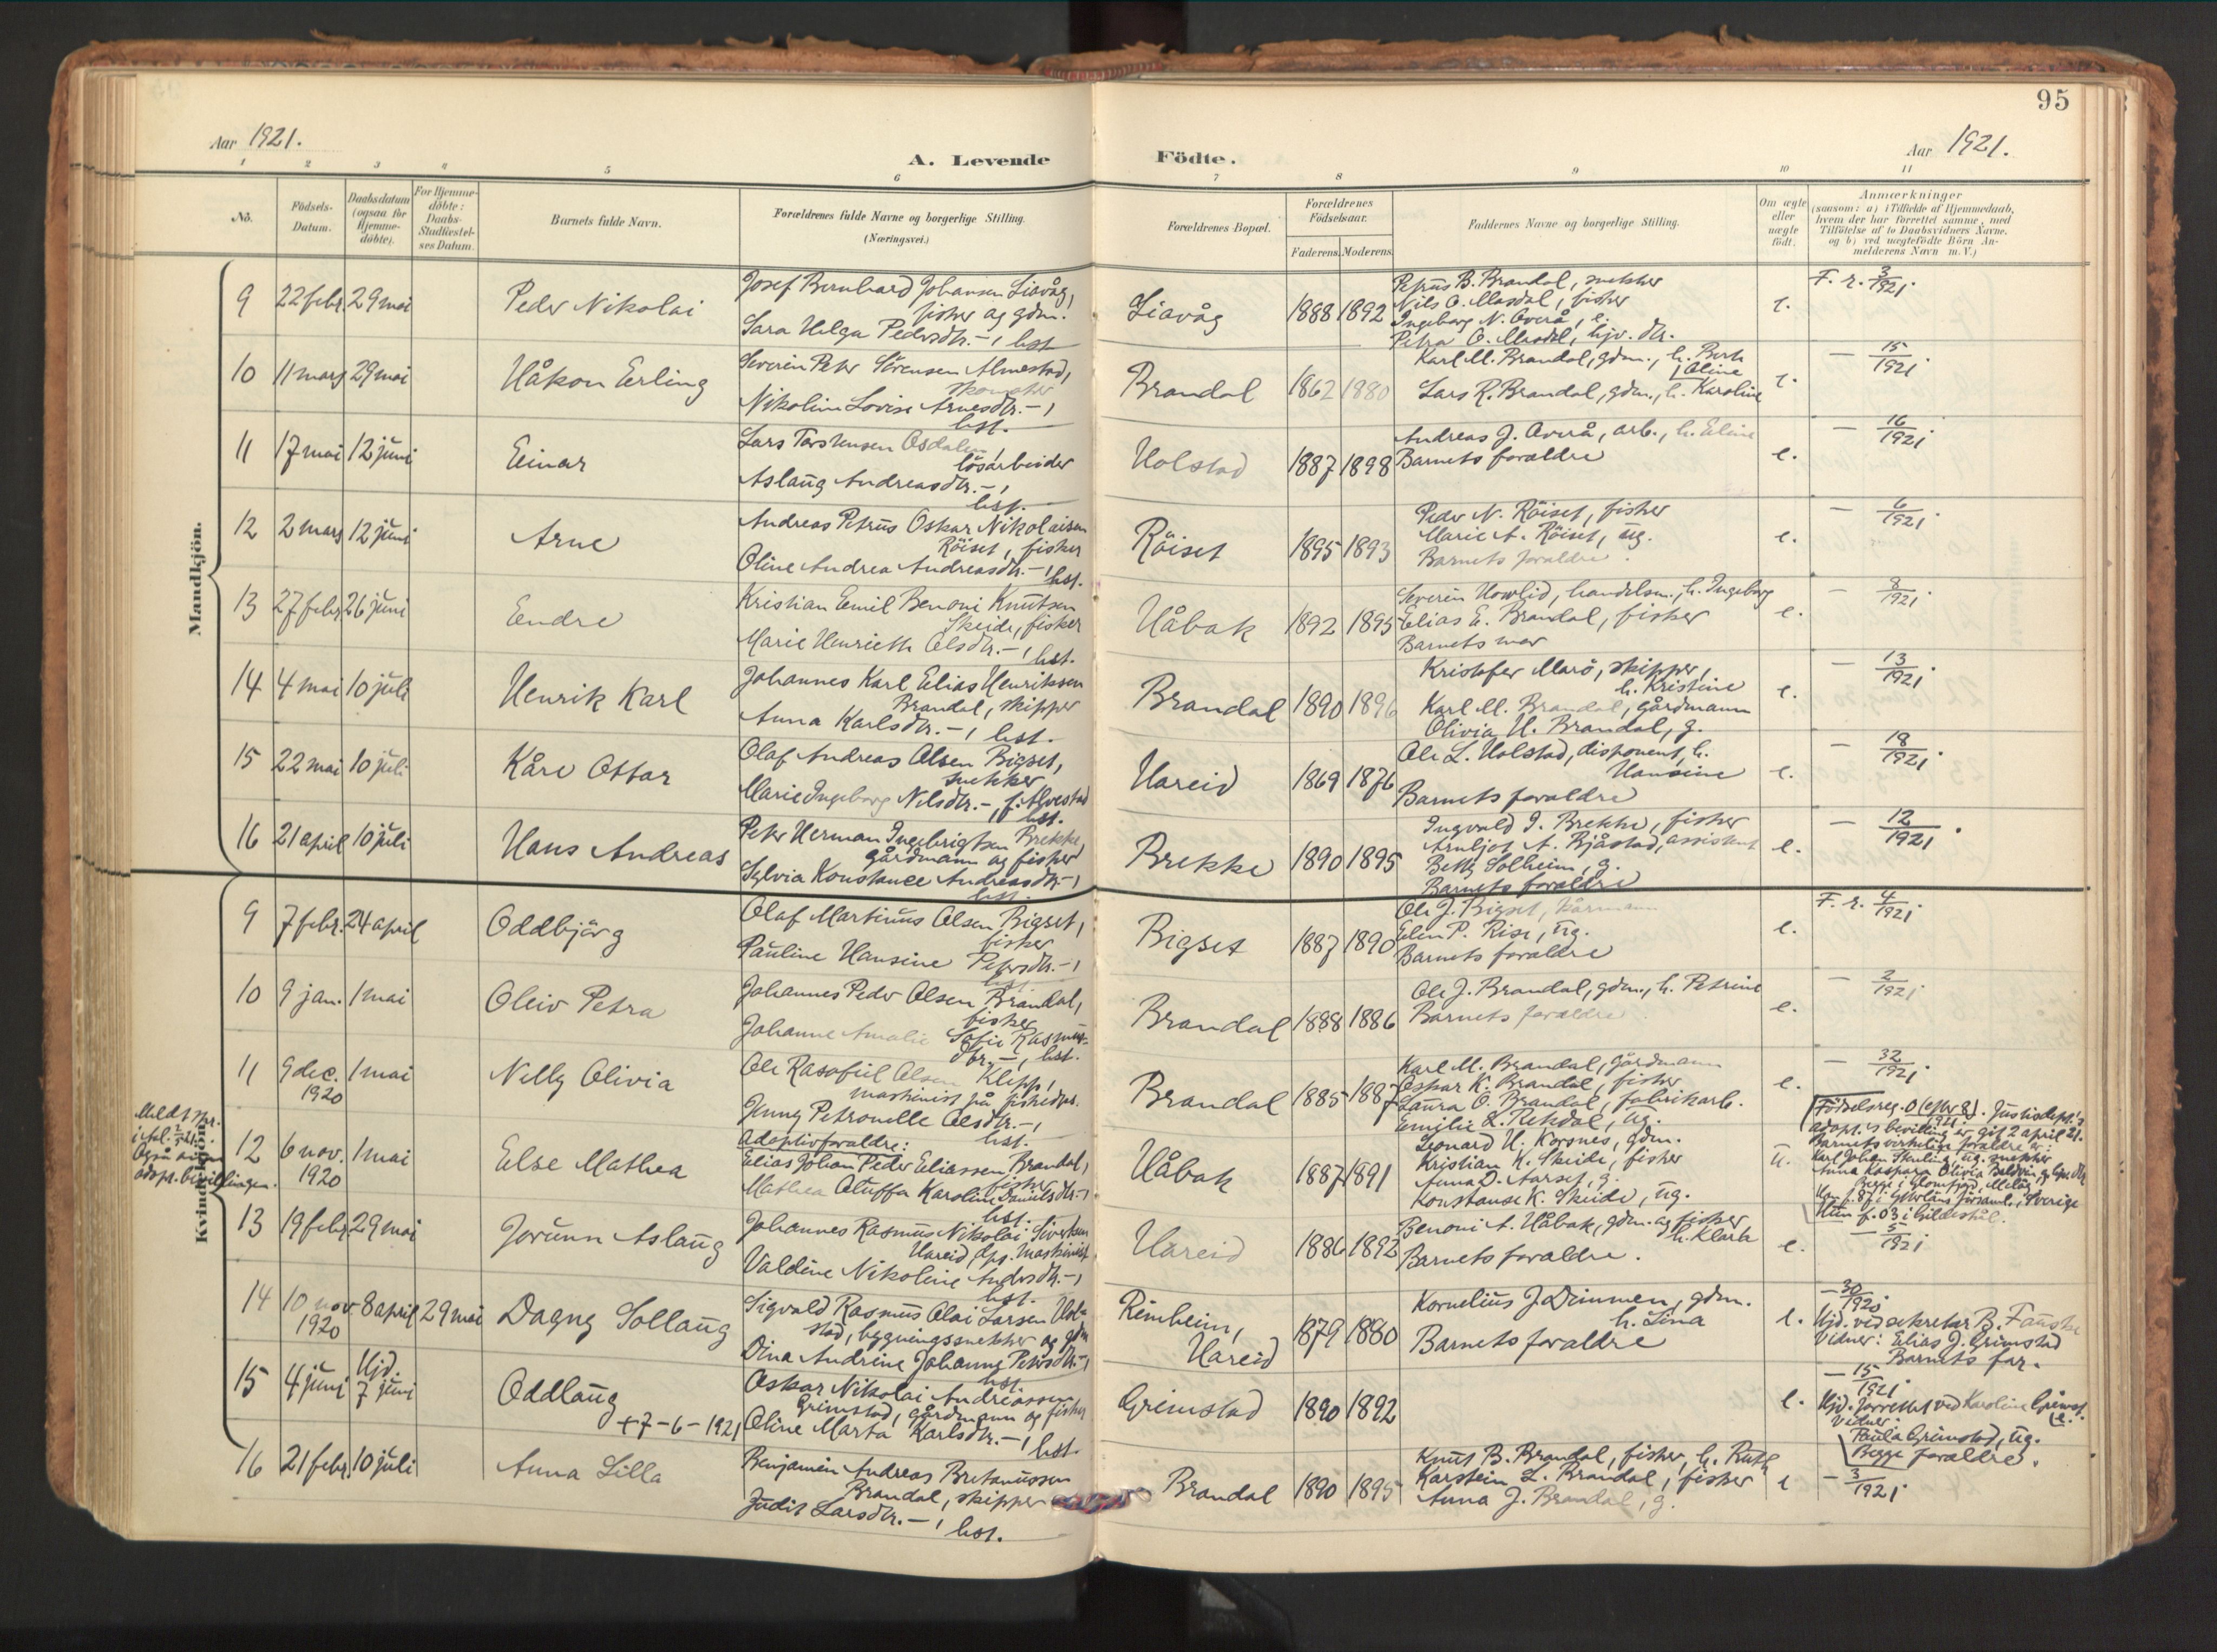 95
Aar 1921.
A. Levende
Födte.
Aar 1921.
1 2 3 4 5 6 7 8 9 10 11
No.
Födsels-Datum.
Daabsdatum (ogsaa for Hjemme-döbte).
For Hjemme-döbte: Daabs-Stadfæstel-ses Datum.
Barnets fulde Navn.
Forældrenes fulde Navne og borgerlige Stilling. (Næringsvei.)
Forældrenes Bopæl.
Forældrenes Födselsaar.
Faderens. Moderens.
Faddernes Navne og borgerlige Stilling.
Om ægte eller uægte födt.
Anmærkninger
(saasom: a) i Tilfælde af Hjemmedaab,
hvem der har forrettet samme, med
Tilföielse af to Daabsvidners Navne.
og b) ved uægtefödte Börn An-
melderens Navn m. V.)
Mandkjön.
9 22 febr. 29 mai Peder Nikolai
Josef Bernhard Johansen Liavåg,
fisker og gdm.
Sara Helga Pedersdtr. — , hst.
Liavåg 1888 1892
Petrus B. Brandal, snekker
Nils O. Masdal, fisker
Ingeborg N. Overå, e.
Petra O. Masdal, hjv. dtr.
e.
F. r. 3/1921.
10 11 mars 29 mai Håkon Erling
Severin Peter Sörensen Almestad,
skomaker
Nikoline Lovise Arnesdtr. — ,
hst.
Brandal 1862 1880
Karl M. Brandal, gdm., h. Berte
Oline
Lars R. Brandal, gdm., h. Karoline
e.
— 15/1921.
11 17 mai 12 juni Einar
Lars Torstensen Osdalen,
lösarbeider
Aslaug Andreasdtr. — ,
hst.
Holstad 1887 1898
Andreas J. Overå, arb., h. Eline
Barnets foraldre
e.
— 16/1921.
12 2 mars 12 juni Arne
Andreas Petrus Oskar Nikolaisen
Röiset, fisker
Oline Andrea Andreasdtr. — , hst.
Röiset 1895 1893
Peder N. Röiset, fisker
Marie A. Röiset, ug.
Barnets foraldre.
e.
— 6/1921.
13 27 febr. 26 juni Endre
Kristian Emil Benoni Knutsen
Skeide, fisker
Marie Henriette Olsdtr. — , hst.
Håbak 1892 1895
Severin Hovlid, handelsm., h. Ingeborg
Elias E. Brandal, fisker
Barnets mor
e.
— 8/1921.
14 4 mai 10 juli Henrik Karl
Johannes Karl Elias Henriksen
Brandal, skipper
Anna Karlsdtr. — , hst.
Brandal 1890 1896
Kristofer Marö, skipper,
h. Kristine
Karl M. Brandal, gårdmann
Olivia H. Brandal, g.
e.
— 13/1921.
15 22 mai 10 juli Kåre Ottar
Olaf Andreas Olsen Bigset,
snekker
Marie Ingeborg Nilsdtr. — , f. Alvestad
hst.
Hareid 1869 1876
Ole L. Holstad, disponent, h.
Hansine
Barnets foraldre
e.
— 18/1921.
16 21 april 10 juli Hans Andreas
Peter Herman Ingebrigtsen Brekke,
gårdmann og fisker
Sylvia Konstance Andreasdtr. — ,
hst.
Brekke 1890 1895
Ingvald I. Brekke, fisker
Arnljot A. Bjåstad, assistent
Betty Solheim, g.
Barnets foraldre
e.
— 12/1921.
Kvindekjön.
9 7 febr. 24 april Oddbjörg
Olaf Martinus Olsen Bigset,
fisker
Pauline Hansine Petersdtr. — ,
hst.
Bigset 1887 1890
Ole J. Bigset, kårmann
Elen P. Rise, ug.
Barnets foraldre
e.
F. r. 4/1921.
10 9 jan. 1 mai Oleiv Petra
Johannes Peder Olsen Brandal,
fisker
Johanne Amalie Sofie Rasmus-
dtr. — , hst.
Brandal 1888 1886
Ole J. Brandal, gdm., h. Petrine
Barnets foraldre
e.
— 2/1921.
11 9 dec. 1920 1 mai Nelly Olivia
Ole Rasofiel Olsen Klepp,
maskinist på fiskedps.
Jenny Petronelle Olsdtr. — ,
hst.
Brandal 1885 1887
Karl M. Brandal, gårdmann
Oskar K. Brandal, fisker
Laura O. Brandal, fabrikarb.
Emilie L. Rekdal, ug.
e.
— 32/1921.
12 6 nov. 1920 1 mai Else Mathea
Adoptivforaldre:
Elias Johan Peder Eliassen Brandal,
fisker
Mathea Oluffa Karoline Danielsdtr. — ,
hst.
Håbak 1887 1891
Leonard H. Korsnes, gdm.
Kristian K. Skeide, fisker
Anna D. Aarset, g.
Konstanse K. Skeide, ug.
u.
Födselsreg. 0 (efter 8)/1921. Justisdept.'s
adopt.'s bevilling er git 2 april 21.
Barnets virkelige foraldre er:
Karl Johan ug. snekker
Anna Kaspara Olivia
Begge i Glomfjord, Melöy
Sverige
Hun f. 03 i Gildeskål.
13 19 febr. 29 mai Jorunn Aslaug
Johannes Rasmus Nikolai Sivertsen
Hareid, dps. maskinist
Valdine Nikoline Andersdtr. — ,
hst.
Hareid 1886 1892
Benoni A. Håbak, gdm. og fisker
h. Klara
Barnets foraldre.
e.
— 5/1921
14 10 nov. 1920 8 april 29 mai Dagny Sollaug
Sigvald Rasmus Olai Larsen Hol-
stad, bygningssnekker og gdm
Dina Andrine Johanne Petersdtr. — ,
hst.
Reinheim, Hareid 1879 1880
Kornelius J. Dimmen, gdm.
h. Lina
Barnets foraldre
e.
— 30/1920.
Hjd. ved sekretær B. Fauske
Vidner: Elias J. Grimstad
Barnets far.
15 4 juni Hjd. 7 juni Oddlaug
+ 7-6-1921
Oskar Nikolai Andreassen
Grimstad, gårdmann og fisker
Oline Marta Karlsdtr. — , hst.
Grimstad 1890 1892
e.
— 15/1921.
Hjd. forrettet ved Karoline Grimst.
e.
Vidner:
Paula Grimstad, ug.
Begge foraldre.
16 21 febr. 10 juli Anna Lilla
Benjamin Andreas Bretanussen
Brandal, skipper
Judit Larsdtr. — , hst.
Brandal 1890 1895
Knut B. Brandal, fisker, h. Ruth
Karstein L. Brandal, fisker
Anna J. Brandal, g.
e
— 3/1921.